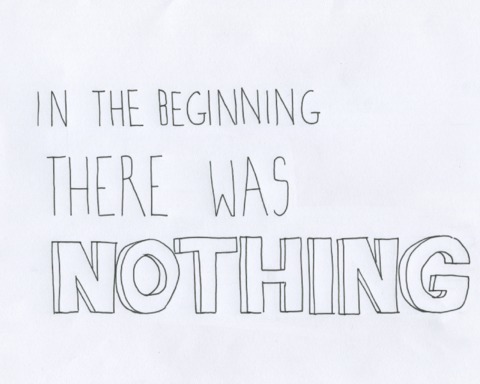 IN THE BEGINNING
THERE WAS
NOTHING